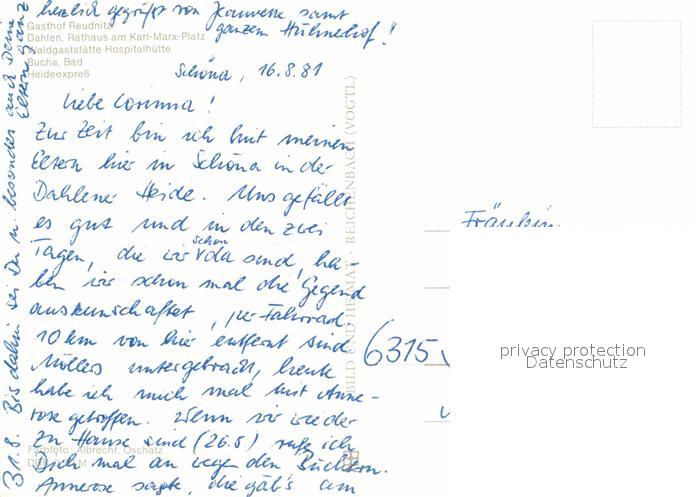 Gasthof Reudnitz
Dahlen, Rathaus am Karl-Marx-Platz
Waldgaststätte Hospitalhütte
Bucha, Bad
Heideexpreß
Schöna, 16.8.81
Liebe Corinna!
Zur Zeit bin ich mit meinen
Eltern hier in Schöna in der
Dahlener Heide. Uns gefällt
es gut und in den zwei
Tagen, die wir schon da sind, ha-
ben wir schon mal die Gegend
auskunschaftet, per Fahrrad.
10 km von hier entfernt sind
Möllers untergebracht, heute
habe ich mich mal mit Anne-
rose getroffen. Wenn wir wieder
zu Hause sind (26.8) rufe ich
Dich mal an wegen den Büchern.
Annerose sagte, die gäb's am
31.8. Bis dahin sei Du u. besonders auch Deine
Eltern ganz
herzlich gegrüßt von Jeannette samt
ganzem Hühnerhof!
Farbfoto: Albrecht, Oschatz
BILD UND HEIMAT REICHENBACH (VOGTL)
Fräulein
6315
privacy protection
Datenschutz